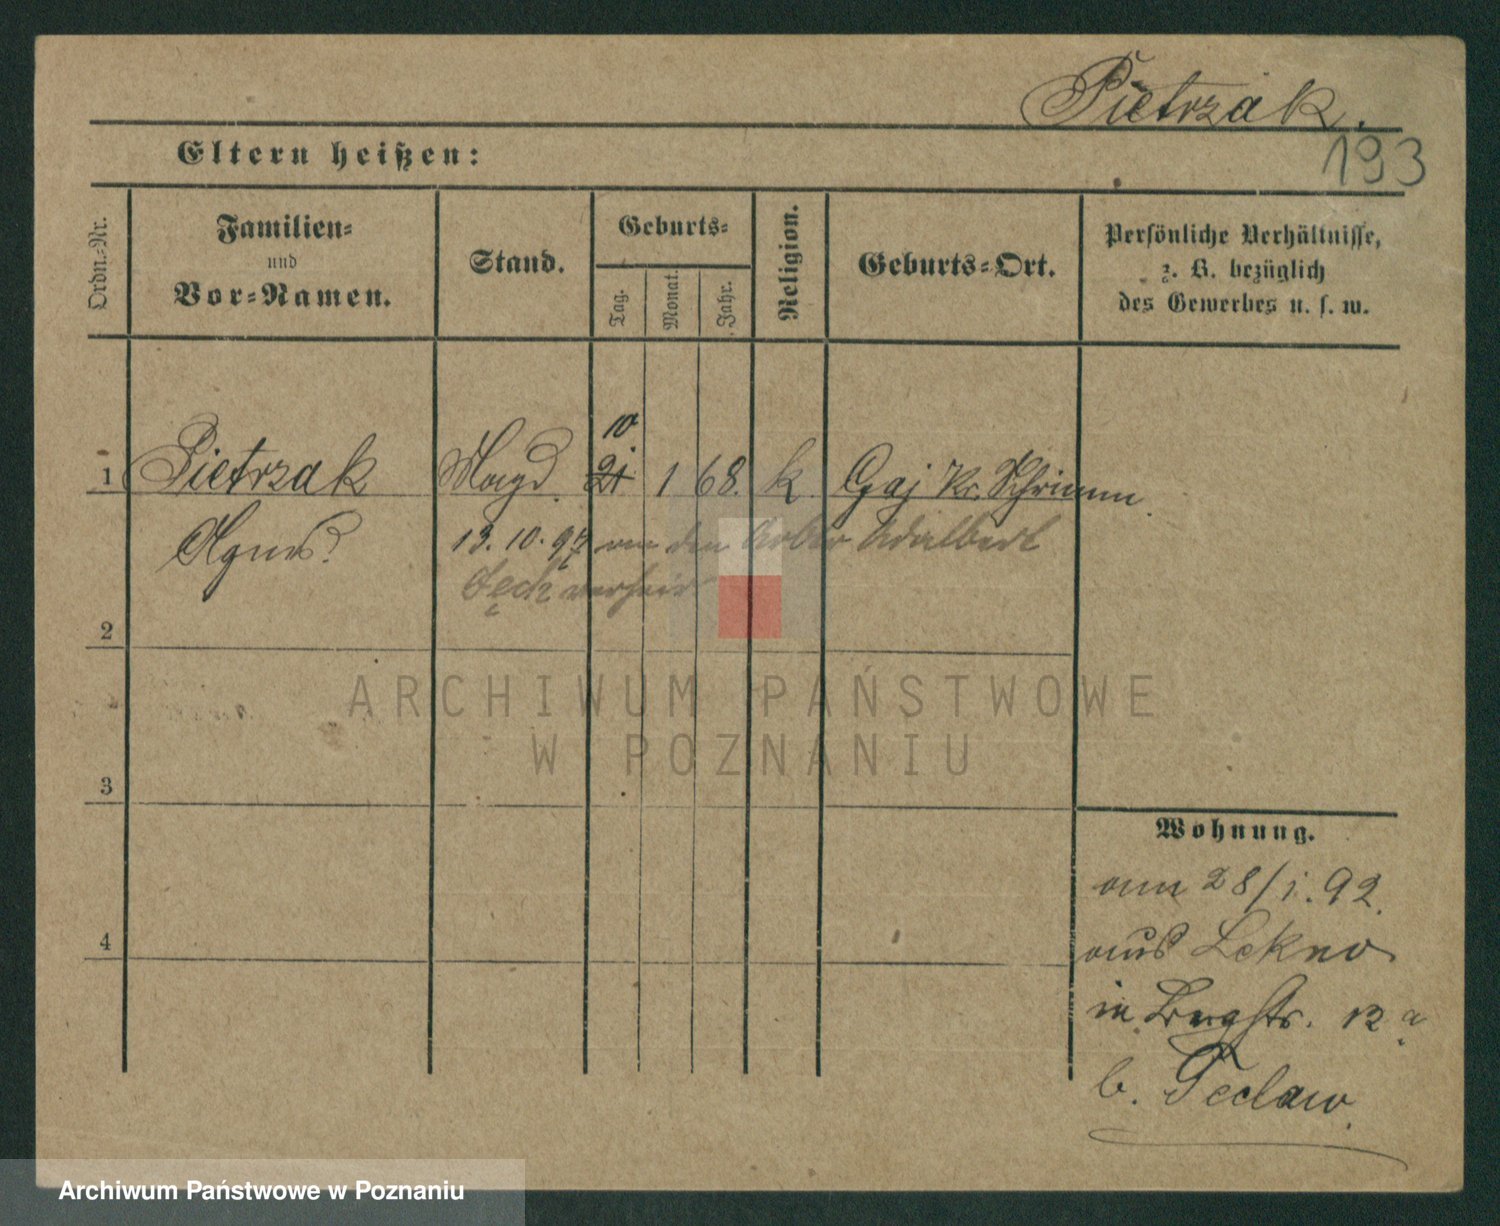 Pietrzak.
193
Eltern heißen:
Ordn.-Nr.
Familien-
und
Vor-Namen.
Stand.
Geburts-
Tag.
Monat.
Jahr.
Religion.
Geburts-Ort.
Persönliche Verhältnisse,
z. B. bezüglich
des Gewerbes u. s. w.
10
1 Pietrzak Magd. 21 1 68. k. Gaj Kr. Schrimm.
Agnes
13. 10. 97 an den Arber Adalbert
verheir
2
3
4
ARCHIWUM PAŃSTWOWE
W POZNANIU
Wohnung.
am 28/1. 92.
aus Lekno
in Bergstr. 12a
b. Teclaw.
Archiwum Państwowe w Poznaniu